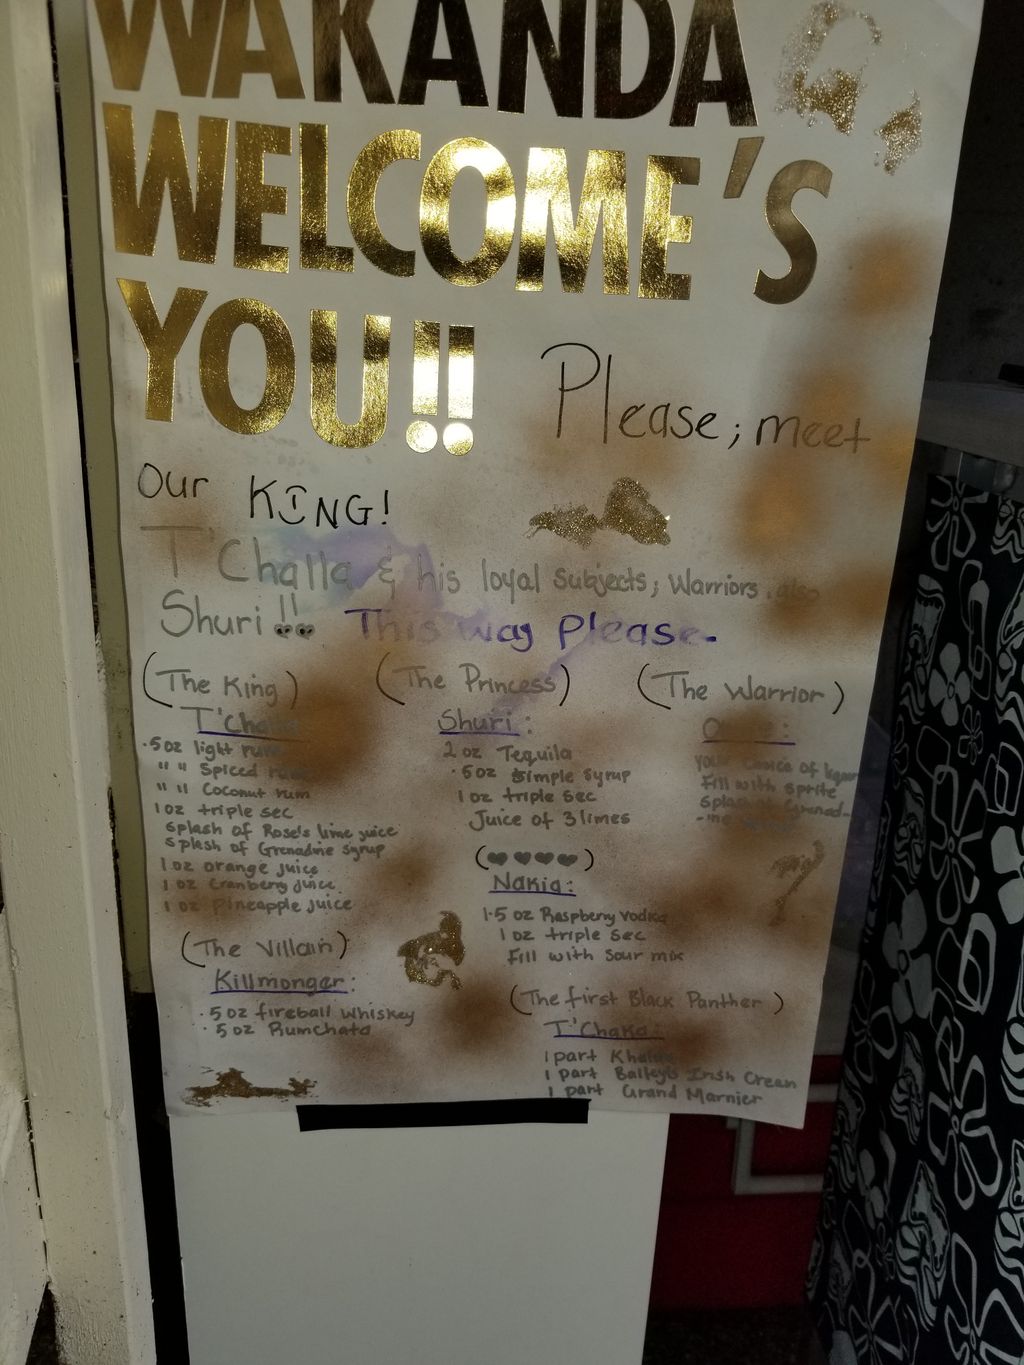 WAKANDA
WELCOME'S
YOU!!
Please; meet
our KING!
T'Challa & his loyal Subjects; Warriors, also
Shuri!! This way please.
(The King)
T'Challa
.5oz light rum
" " Spiced rum
" " Coconut rum
1 oz triple sec
splash of Rose's lime juice
splash of Grenadine syrup
1 oz orange juice
1 oz Cranberry juice
1 oz Pineapple juice
(The Villain)
Killmonger:
.5 oz fireball Whiskey
.5 oz Rumchata
(The Princess)
Shuri:
2 oz Tequila
.5oz simple syrup
1 oz triple sec
Juice of 3 limes
(♥♥♥♥)
Nakia:
1.5 oz Raspberry vodka
1 oz triple sec
Fill with sour mix
(The Warrior)
your choice of liquor
Fill with sprite
splash of Grenad-
-ine
(The first Black Panther)
T'Chaka:
1 part
1 part Bailey's Irish Cream
1 part Grand Marnier